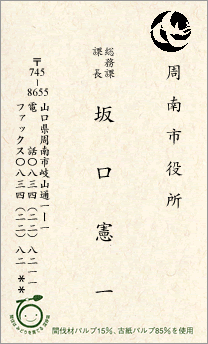 周南市役所
総務課
課長
坂口憲一
〒745-8655
山口県周南市岐山通一-一
電話〇八三四(二二)八二一一
ファックス〇八三四(二二)八二**
間伐材パルプ15%、古紙パルプ85%を使用